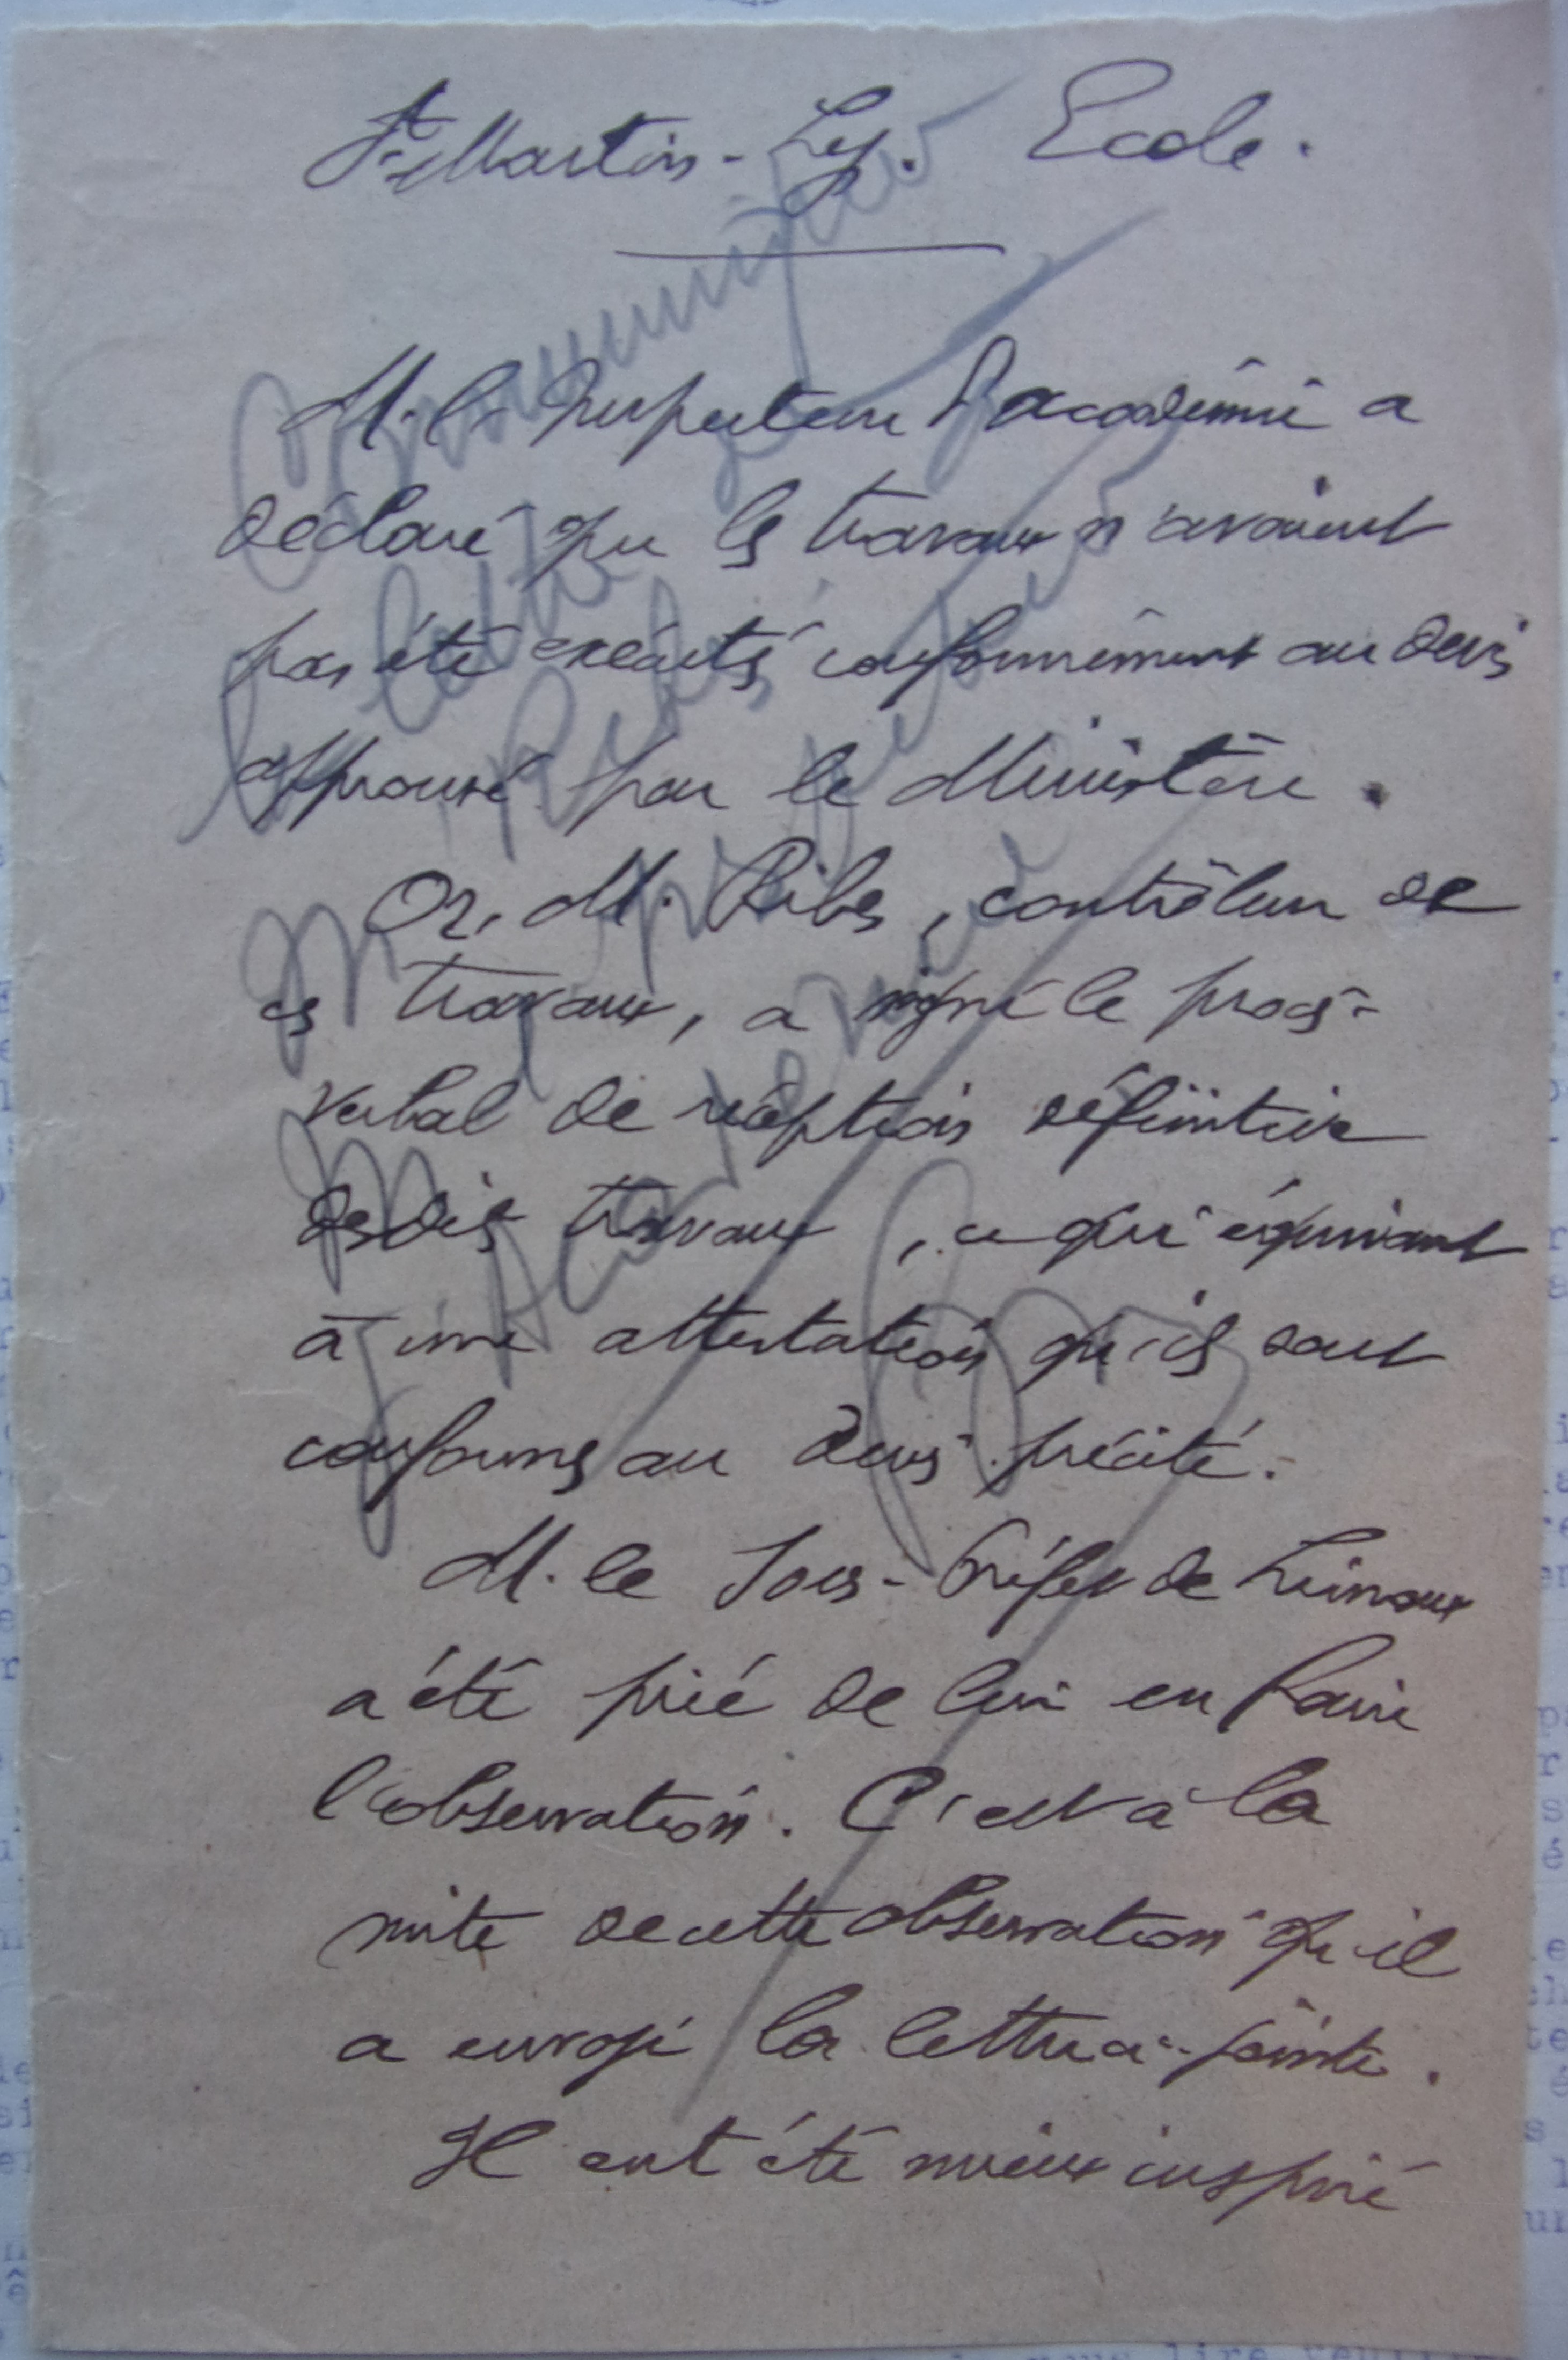 St Martin-Lys. Ecole.
M. l'Inspecteur d'académie a
déclaré que les travaux n'avaient
pas été exécutés conformément au devis
approuvé par le Ministère.
Or, M. Ribes, contrôleur de
ces travaux, a signé le procès-
verbal de réception définitive
desdits travaux, ce qui équivaut
à une attestation qu'ils sont
conformes au devis précité.
M. le Sous-Préfet de Limoux
a été prié de lui en faire
l'observation. C'est à la
suite de cette observation qu'il
a envoyé la lettre ci-jointe.
Il eut été mieux inspiré
Communiquer
la lettre de
M. Ribes